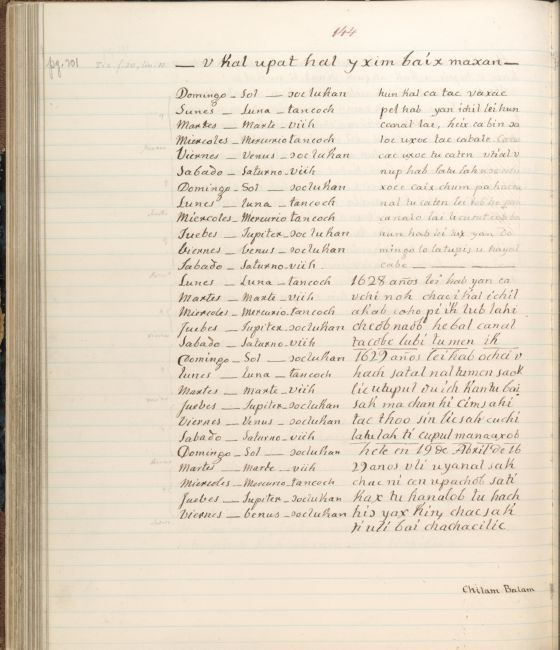 144
pg. 701
— v kal upat hal y xim baix maxan —
Domingo - Sol — soclukan hun kal ca tac vaxac
Lunes — Luna - tancoch pel hab yan ichil lei hun
Martes — Marte - viih ccanal lae, heix ca bin so
Miercoles - Mercurio tancoch toc uxoc lae cabale
Viernes — Venus - soclukan cac uxoc tu caten
Sabado — Saturno - viih nup hab latulah
Domingo - Sol — soclukan xocc caix chum pa hactu
Lunes — luna - tancoch nal tu caten lei
Miercoles - Mercurio tancoch canalo lai licutut
Juebes — Jupiter - soclukan hun hab lei las yan do
Viernes — benus - soclukan mingo lo latuzis u hayal
Sabado — Saturno - viih. cabe — — —
Lunes — Luna - tancoch 1628 años lei hab yan ca
Martes — Marte - viih vchi noh chac i hal ichil
Miercoles - Mercurio - tancoch akab coho pi ik lub lahi
Juebes — Jupiter - soclukan cheob naob he bal canal
Sabado — Saturno - viih tacobe lubi tumen ik
Domingo — Sol — soclukan 1629 años lei hab ochci v
lunes — luna — tancoch hach satal nal tumen sack
Martes — marte - viih lic utupul vuich kantu bai
Juebes — Jupiter - soclukan sak ma chan hi cimsahi
Viernes — Venus — soclukan tac thoo sin licsah cuchi
Sabado — Saturno - viih latulah ti cupul manaaxob
Domingo — Sol — soclukan hele en 19 de Abril de 16
Martes — Marte — viih 29 anos vli uyanal sak
Miercoles — Mercurio - tancoch chac ni cen upachob sati
Juebes — Jupiter - soclukan kax tu hanalob tu hach
Viernes — benus - soclukan his yax kin, chac sak
ti uli bai chachacilic
Chilam Balam